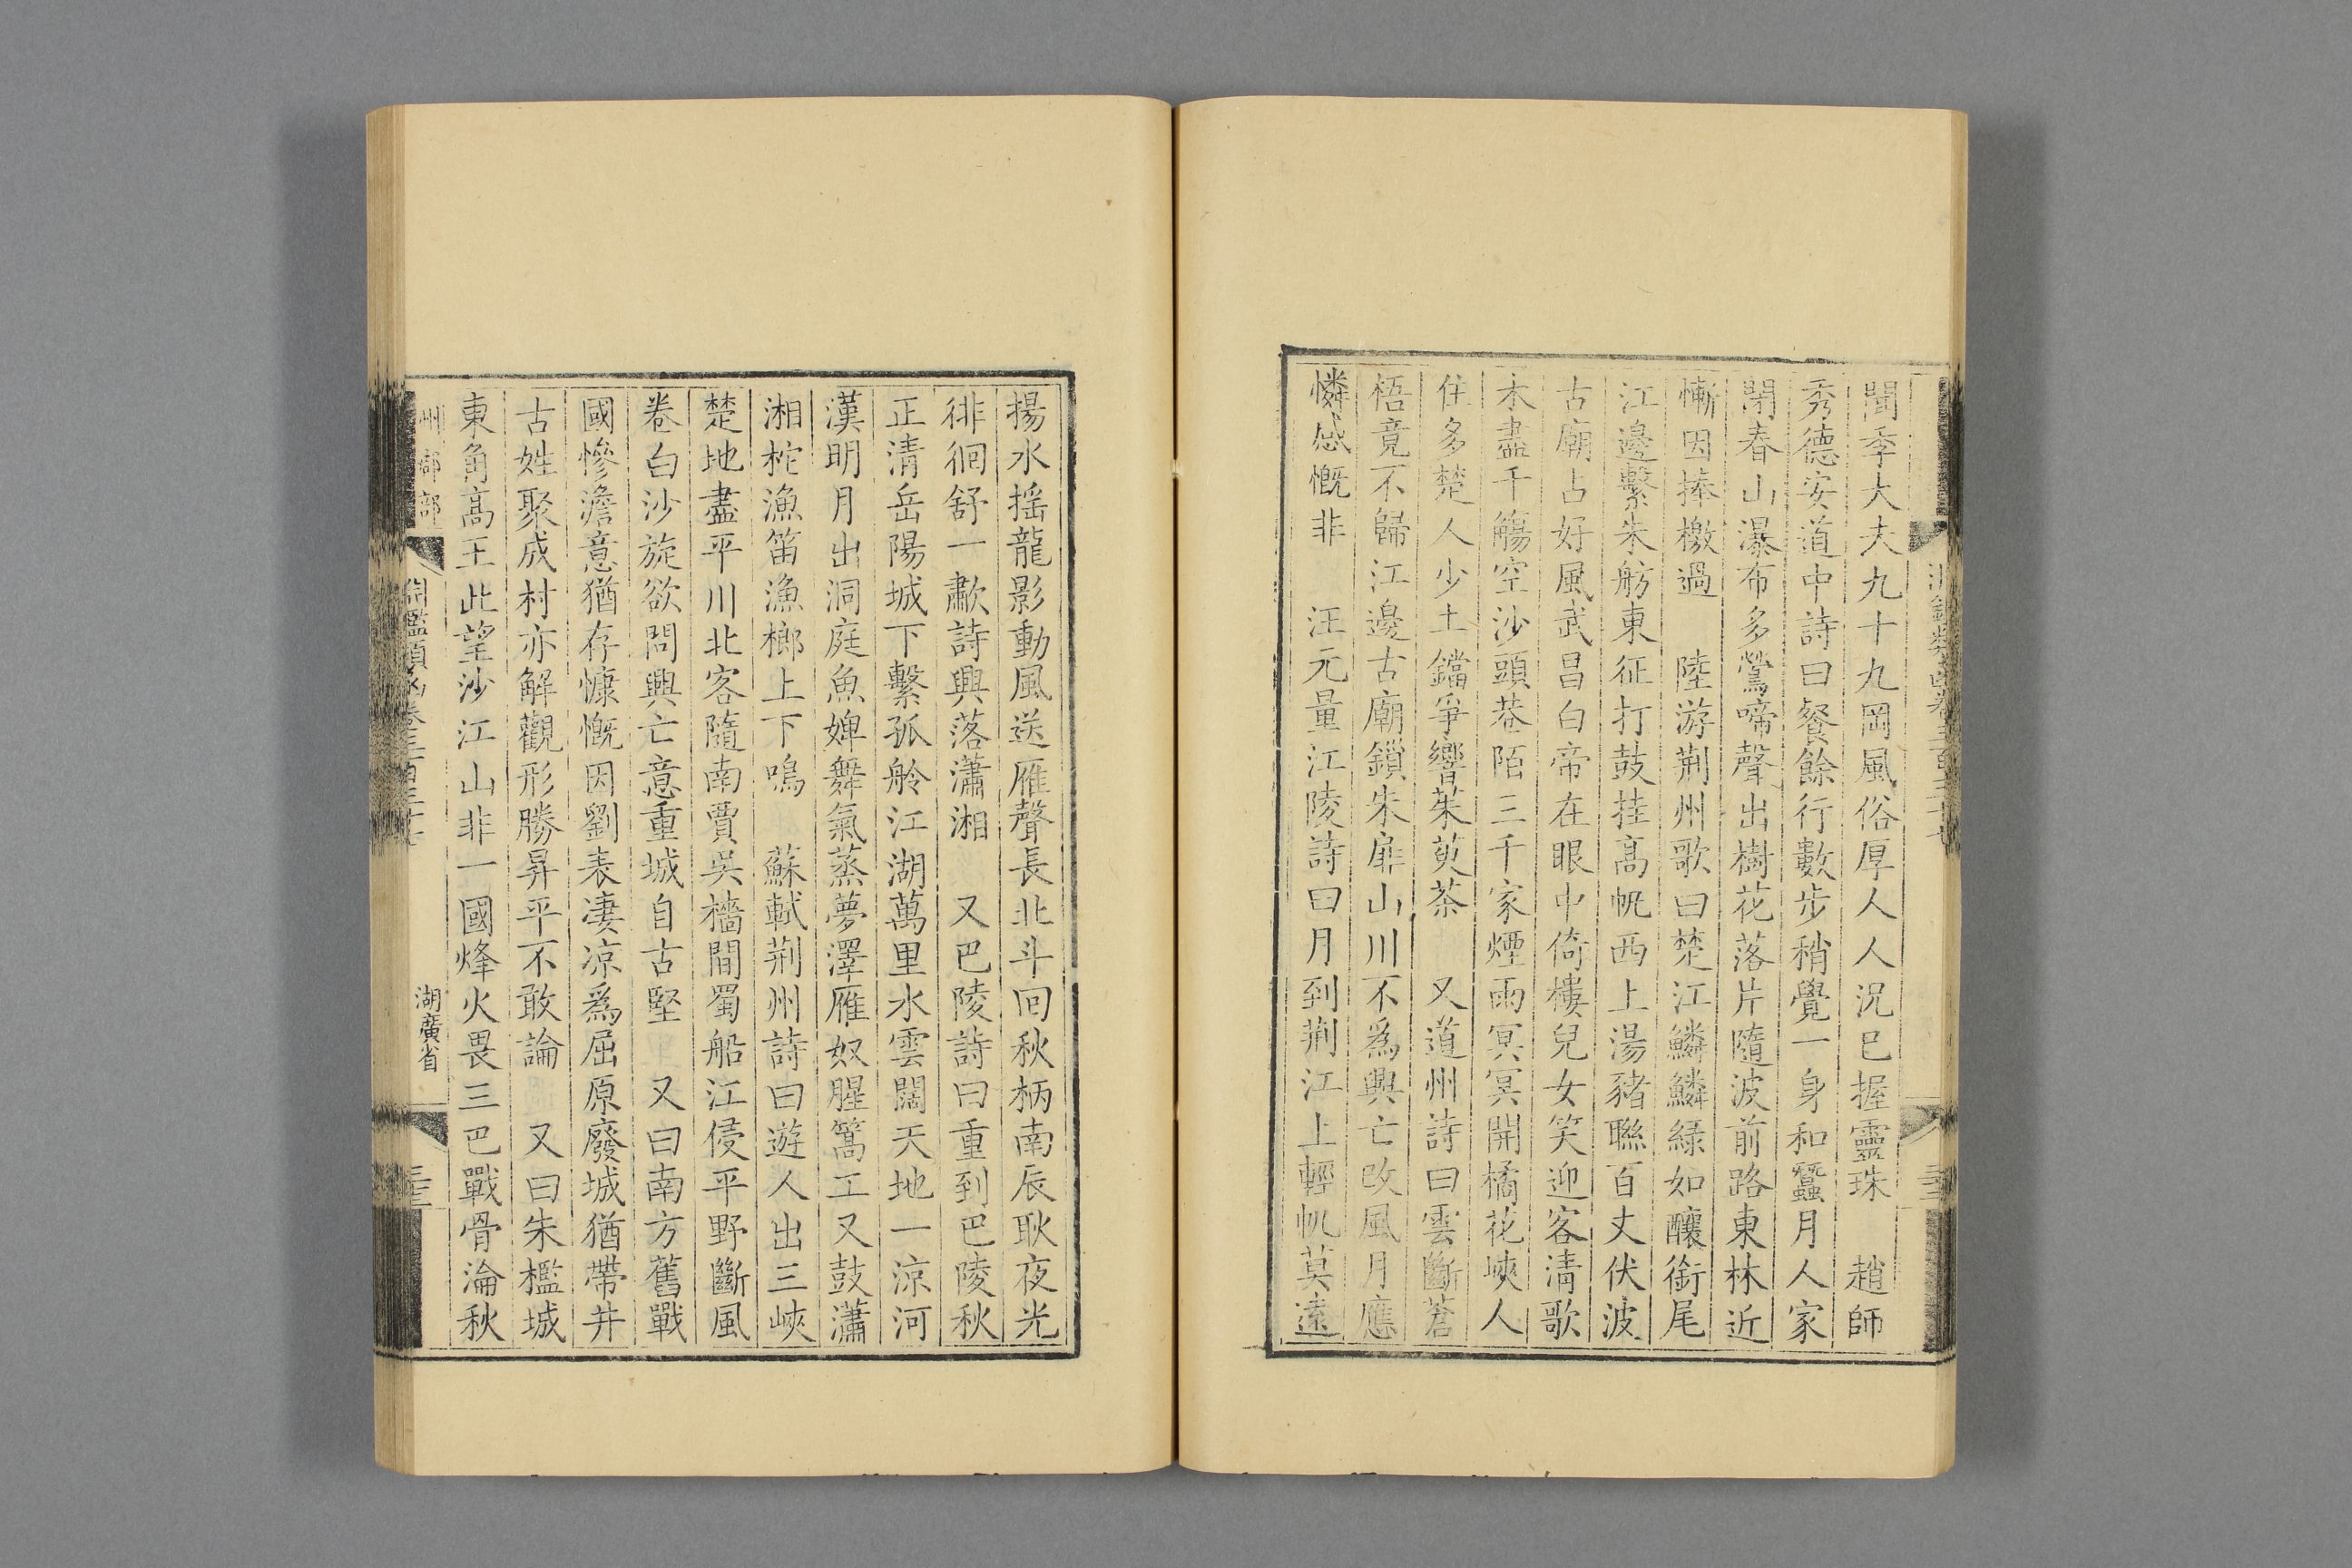 閩季大夫九十九岡風俗厚人人況巳握靈珠　趙師
秀德安道中詩曰餐餘行數步稍覺一身和蠶月人家
閉春山瀑布多鶯啼聲出樹花落片隨波前路東林近
慚因捧檄過　陸游荆州歌曰楚江鱗鱗綠如釀銜尾
江邊繫朱舫東征打鼓挂高帆西上湯豬聯百丈伏波
古廟占好風武昌白帝在眼中倚樓兒女笑迎客清歌
未盡千觴空沙頭巷陌三千家煙雨冥冥開橘花峽人
住多楚人少土鐺爭響茱萸茶　又道州詩曰雲斷蒼
梧竟不歸江邊古廟鎖朱扉山川不爲興亡改風月應
憐感慨非　汪元量江陵詩曰月到荆江上輕帆莫遠
揚水摇龍影動風送雁聲長北斗回秋柄南辰耿夜光
徘徊舒一歗詩興落瀟湘　又巴陵詩曰重到巴陵秋
正清岳陽城下繫孤舲江湖萬里水雲闊天地一涼河
漢明月出洞庭魚婢舞氣蒸夢澤雁奴腥篙工又鼓瀟
湘柁漁笛漁榔上下鳴　蘇軾荆州詩曰遊人出三峽
楚地盡平川北客隨南賈吳檣間蜀船江侵平野斷風
卷白沙旋欲問興亡意重城自古堅　又曰南方舊戰
國慘澹意猶存慷慨因劉表凄凉爲屈原廢城猶帶井
古姓聚成村亦解觀形勝昇平不敢論　又曰朱檻城
東角高王此望沙江山非一國烽火畏三巴戰骨淪秋
州郡部
淵鑑類函卷三百三十七
湖廣省